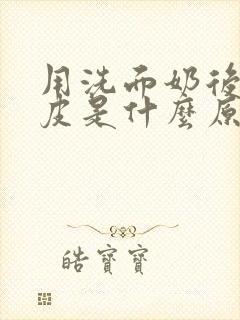 用洗而奶後
皮是什麼原
皓寶寶